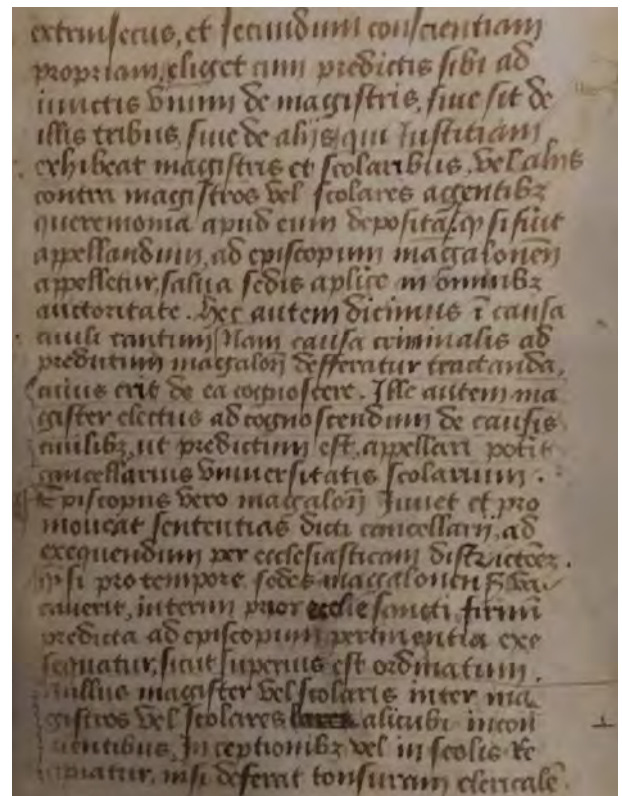 extrinsecus, et secundum conscientiam
propriam, eliget cum predictis sibi ad
iunctis vnum de magistris, siue sit de
illis tribus, siue de alijs, qui Iustitiam
exhibeat magistris et scolaribus, vel alijs
contra magistros vel scolares agentibꝫ
queremonia apud eum deposita. ꝙ si fu̾it
appellandum, ad episcopum magalonen̄
appelletur, salua sedis aplice in omnibꝫ
auctoritate. hec autem dicimus ī causa
ciuili tantum Nam causa criminalis ad
predictum magalon̄ defferatur tractanda,
cuius erit de ea cognoscere. Ille autem ma
gister electus ad cognoscendum de causis
ciuilibꝫ, ut predictum est, appellari pot̾it
cancellarius vniuersitatis scolarium.
Episcopus vero magalon̄ Iuuet et pro
moueat sententias dicti cancellarij, ad
exequendum per ecclesiasticam
ꝙ si pro tempore sedes magalonen̄
cauerit, interim prior ecclie sancti firmini
predicta ad episcopum pertinentia exe
sequatur, sicut superius est ordinatum.
Nullus magister vel scolaris inter ma
gistros vel scolares alicubi incon
uientibus, In ceptionibꝫ vel in scolis Re
cipiatur, nisi deferat tonsuram clericalē.